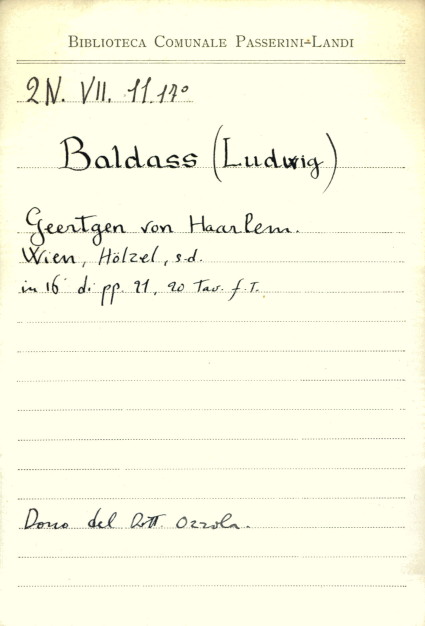 BIBLIOTECA COMUNALE PASSERINI-LANDI
2N. VII. 11.17°
Baldass (Ludwig)
Geertgen von Haarlem.
Wien, Hölzel, s.d.
in 16° di pp. 21, 20 Tav. f.T.
Dono del Dott. Ozzola.